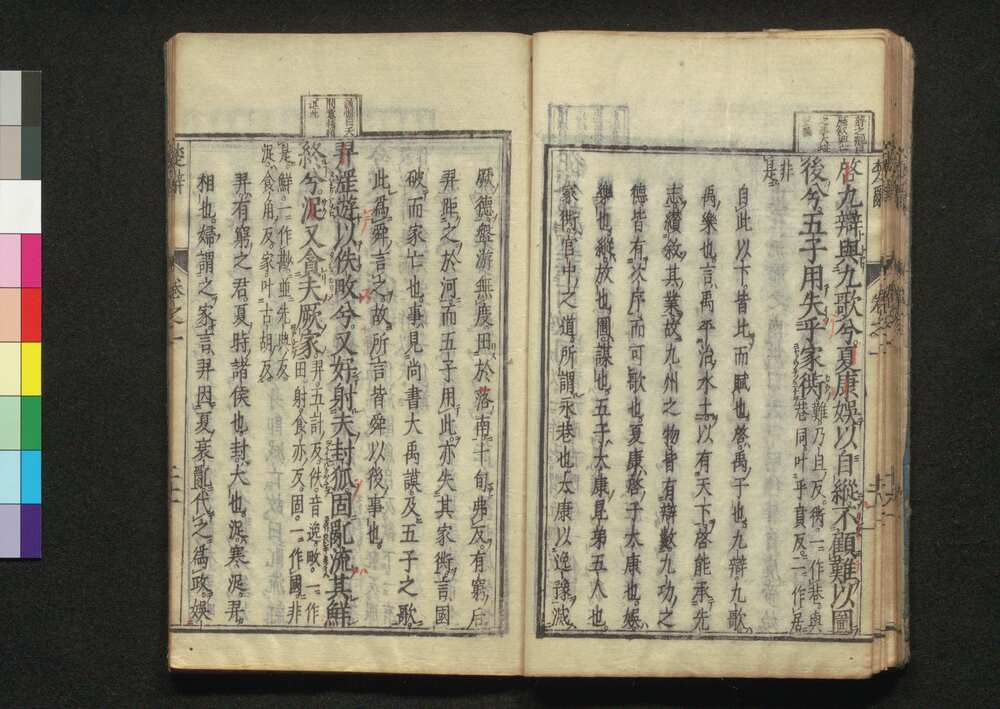 啓九辯與九歌兮夏康娛以自縱不顧難以圖
後兮五子用失乎家衖難乃旦反衖一作巷與
巷同叶乎貢反一作居
非是
自此以下皆比而賦也啓禹子也九辯九歌
禹樂也言禹平治水土以有天下啓能承先
志纘敘其業故九州之物皆有辯數九功之
德皆有次序而可歌也夏康啓子太康也娛
樂也縱放也圖謀也五子太康昆弟五人也
家衖宮中之道所謂永巷也太康以逸豫滅
厥德盤游無度田於洛南十旬弗反有窮后
羿距之於河而五子用此亦失其家衖言國
破而家亡也事見尚書大禹謨及五子之歌
此爲舜言之故所言皆舜以後事也
羿淫遊以佚畋兮又好射夫封狐固亂流其鮮
終兮浞又貪夫厥家羿五計反佚音逸畋一作
田射食亦反固一作國非
是鮮一作尠並先典反
浞食角反家叶古胡反
羿有窮之君夏時諸侯也封大也浞寒浞羿
相也婦謂之家言羿因夏衰亂代之爲政娛
楚辭
卷之一